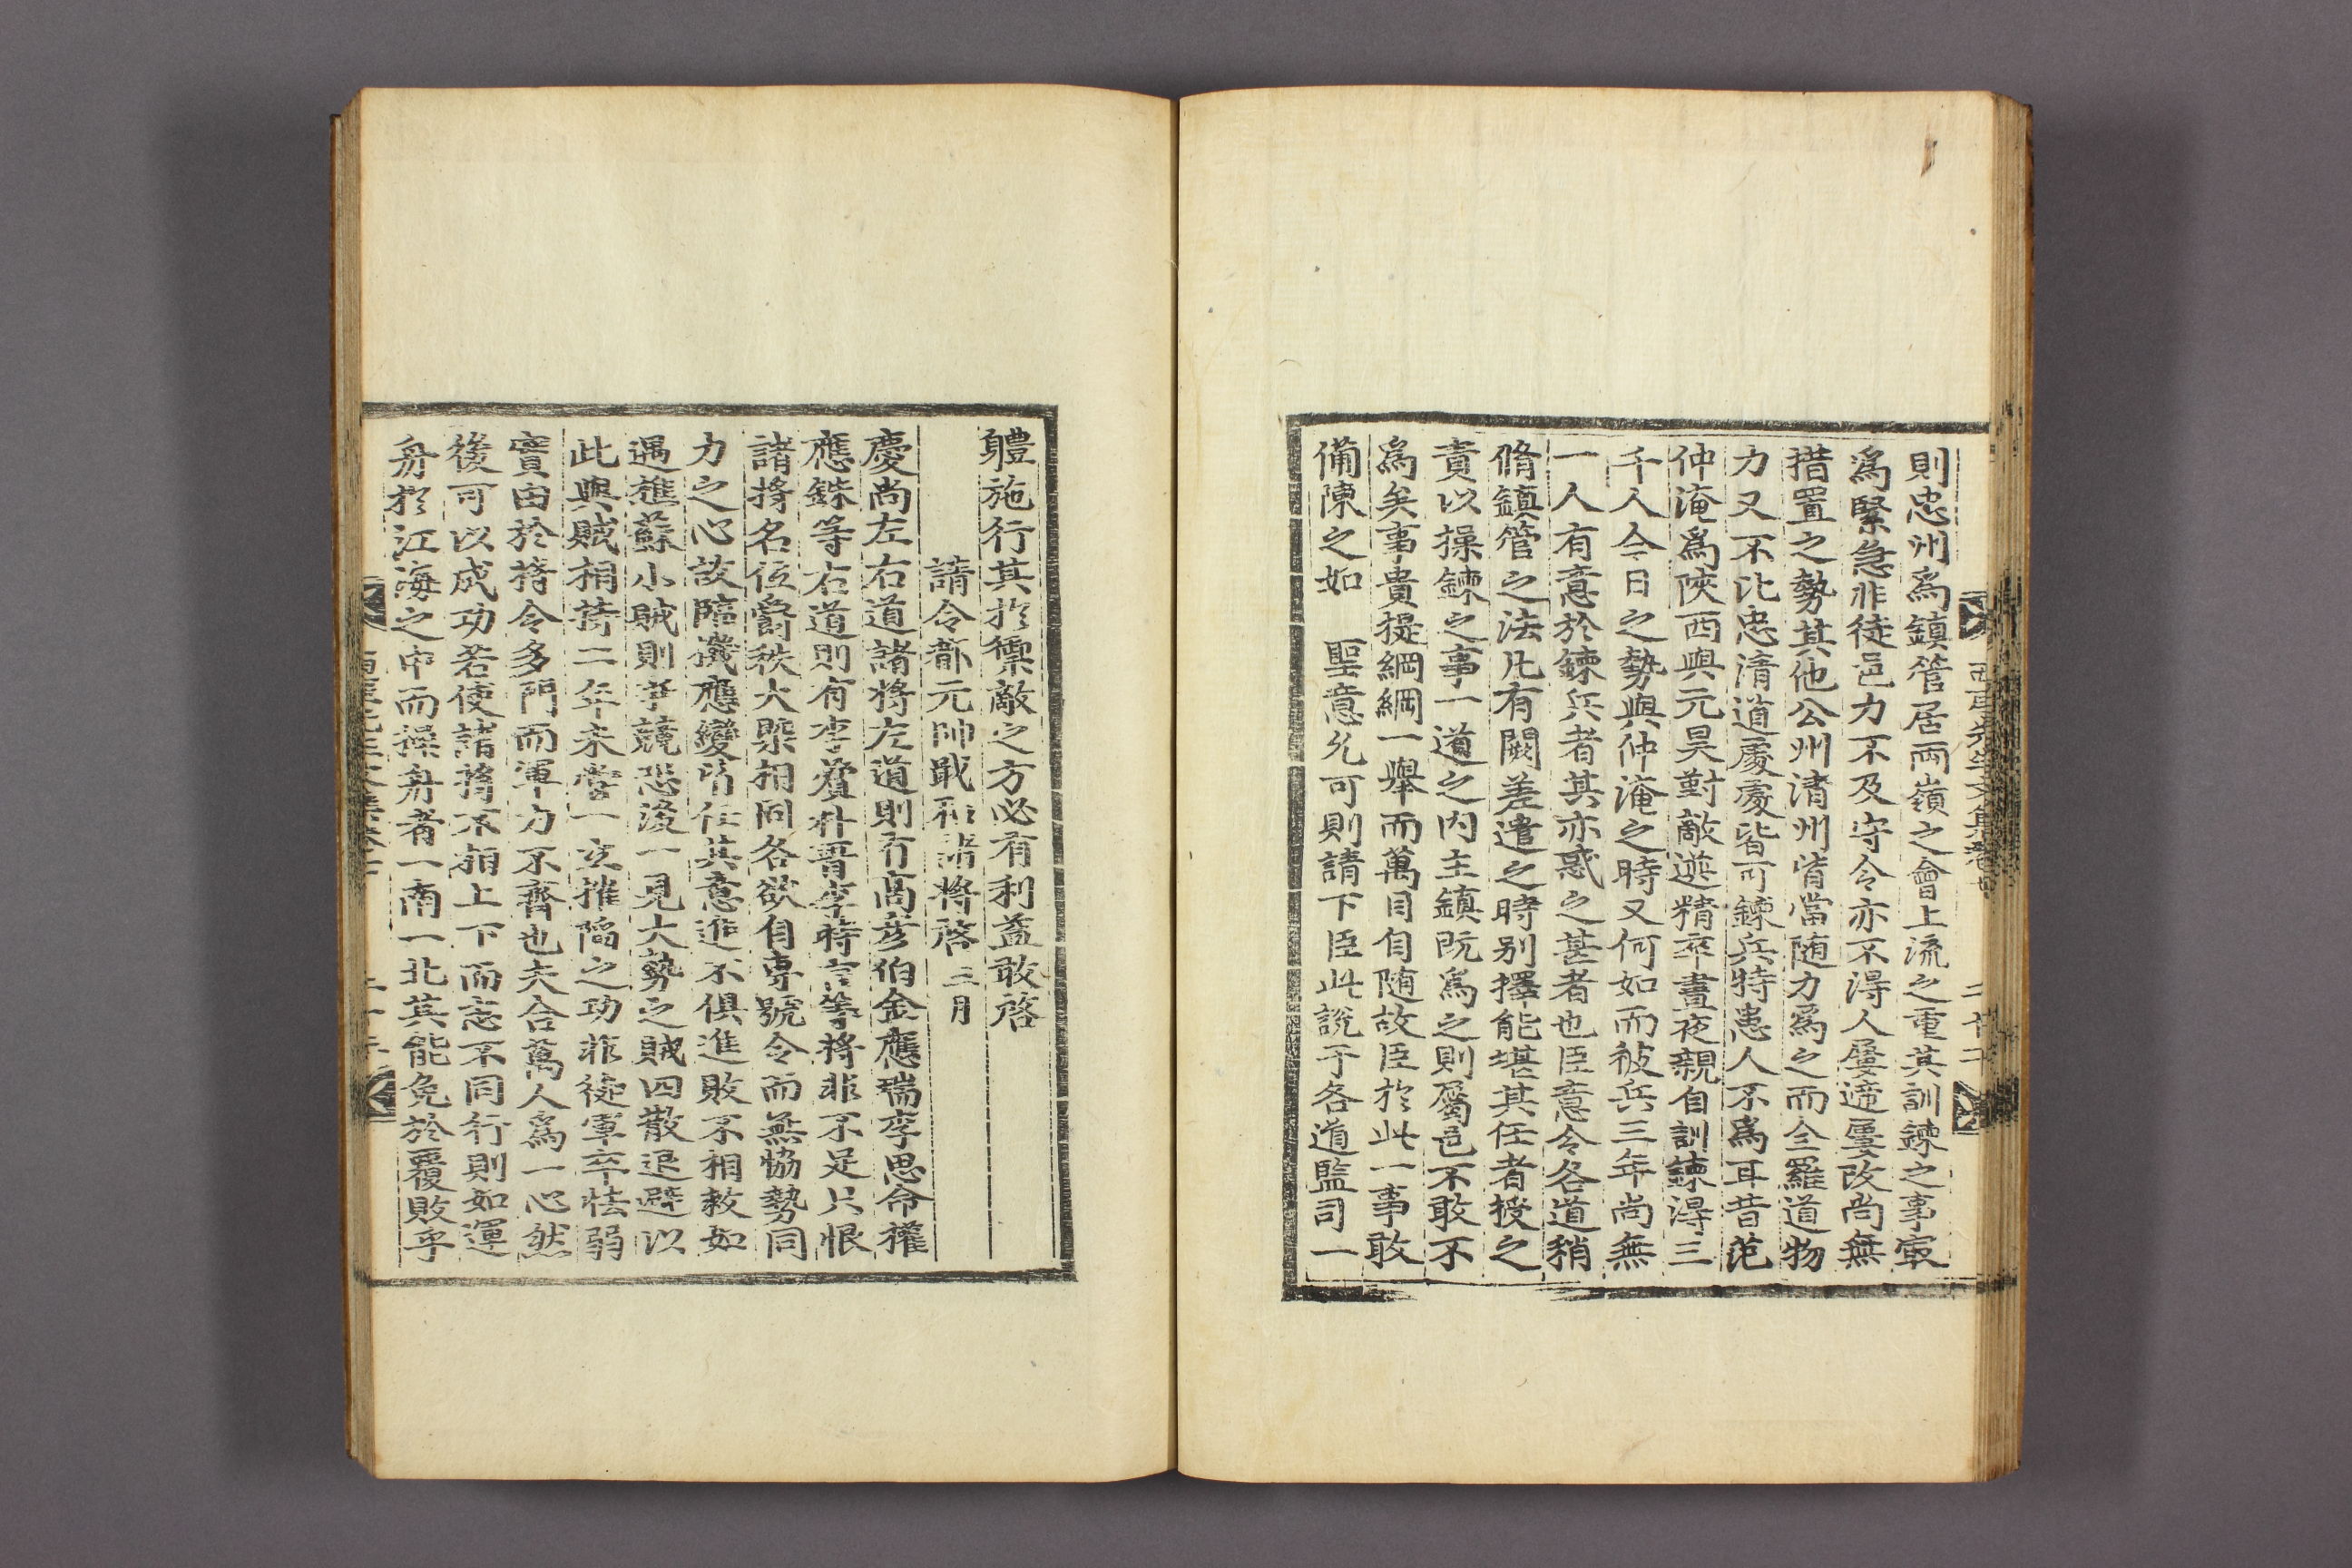 則忠州爲鎮管居兩嶺之會上流之重其訓鍊之事寔
爲緊急非徒邑力不及守令亦不得人屢遞屢改尚無
措置之勢其他公州清州皆當随力爲之而全羅道物
力又不比忠清道處處皆可鍊兵特患人不爲耳昔范
仲淹爲陝西與元昊對敵選精卒晝夜親自訓鍊得三
千人今日之勢與仲淹之時又何如而被兵三年尚無
一人有意於鍊兵者其亦惑之甚者也臣意令各道稍
脩鎮管之法凡有闕差遣之時别擇能堪其任者授之
責以操鍊之事一道之内主鎮既爲之則屬邑不敢不
爲矣事貴提綱綱一舉而萬目自随故臣於此一事敢
備陳之如 聖意允可則請下臣此說于各道監司一
體施行其於禦敵之方必有利益敢啓
請令都元帥戢和諸將啓 三月
慶尚左右道諸將左道則有高彦伯金應瑞李思命權
應銖等右道則有李薲朴晋李時言等將非不足只恨
諸將名位爵秩大槩相同各欲自專號令而無恊勢同
力之心故臨機應變皆任其意進不俱進敗不相救如
遇樵蘇小賊則爭競恐後一見大勢之賊四散退避以
此與賊相持二年未嘗一立摧陷之功非徒軍卒怯弱
實由於將令多門而軍力不齊也夫合萬人爲一心然
後可以成功若使諸將不相上下而志不同行則如運
舟於江海之中而操舟者一南一北其能免於覆敗乎